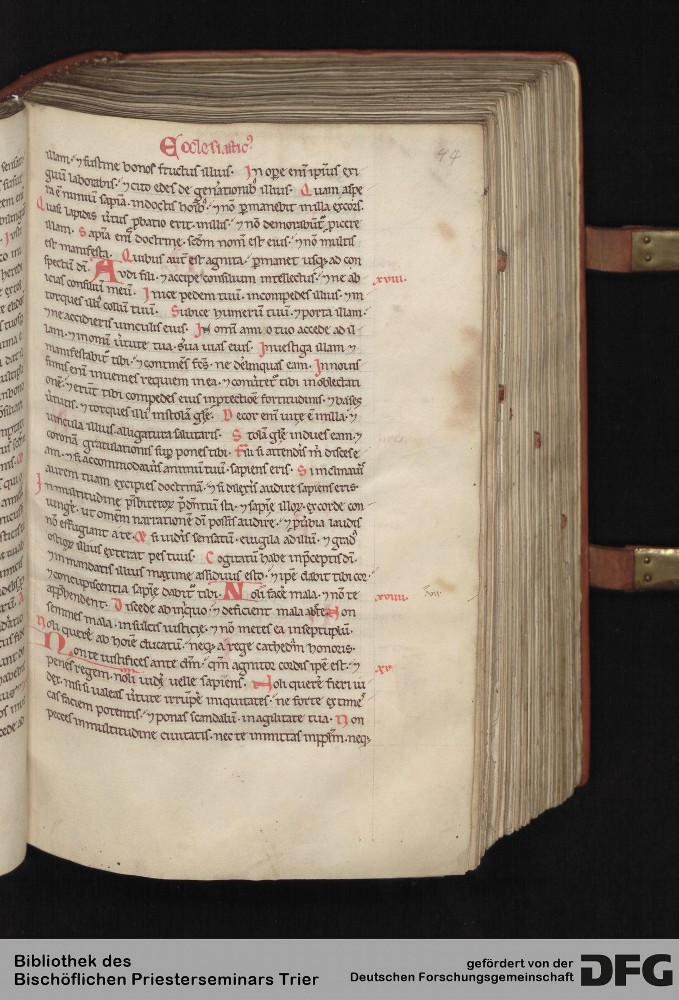 Ecclesiastic⁹
44
illam · ⁊ sustine bonos fructus illius · In ope eni ipsius exi
guu laborabis · ⁊ cito edes de genationib illius · Quam aspe
ra e nimiu sapia indoctis hoib · ⁊ no pmanebit in illa excors ·
Quasi lapidis uirtus pbatio erit in illis · ⁊ no demorabunt picere
illam · Sapia eni doctrine scdm nom est eius · ⁊ no multis
est manifesta · Quibus aut est agnita · pmanet usq ad con
spectu di · Audi fili · ⁊ accipe consilium intellectus · ⁊ ne ab
xviii ·
icias consiliu meu · Inice pedem tuu · in compedes illius · ⁊ in
torques illi collu tuu · Subice humeru tuu · ⁊ porta illam ·
⁊ ne accidieris uinculis eius · In omi animo tuo accede ad il
lam · ⁊ in omi uirtute tua serua uias eius · Inuestiga illam ⁊
manifestabit tibi · ⁊ continens fcs · ne delinquas eam · In nouis
simis eni inuenies requiem in ea · ⁊ conuertet tibi in oblectati
one · ⁊ erunt tibi compedes eius in ptectioe fortitudinis · ⁊ bases
uirtutis · ⁊ torques illi in stola gle · Decor eni uite e in illa · ⁊
uincula illius alligatura salutaris · Stola gle indues eam · ⁊
corona gratulationis sup pones tibi · Fili si attenderis m disces e
am · ⁊ si accommodaueris animu tuu · sapiens eris · Si inclinaueris
aurem tuam excipies doctrina · ⁊ si dilexeris audire sapiens eris ·
In multitudine psbiteror pdentiu sta · ⁊ sapie illor ex corde con
iunge · ut omem narratione di possis audire · ⁊ puerbia laudis
no effugiant a te · Et si uideris sensatu euigila ad illu · ⁊ grad
ostior illius exterat pes tuus · Cogitatu habe in pceptis di ·
⁊ in mandatis illius maxime assiduus esto · ⁊ ipe dabit tibi cor ·
⁊ concupiscentia sapie dabit tibi · Noli face mala · ⁊ no te
xviiii ·
apphendent · Discede ab iniquo · ⁊ deficient mala abs te · Non
semines mala in sulcis iusticie · ⁊ no metes ea in septuplu ·
Noli querere ab hoie ducatu · neq a rege cathedra honoris ·
Non te iustifices ante dm · qm agnitor cordis ipe est · ⁊
xx
penes regem noli uideri uelle sapiens · Noli querere fieri iu
dex nisi si ualeas uirtute irrupere iniquitates · ne forte extimes
cas faciem potentis · ⁊ ponas scandalu in agilitate tua · Non
pecces in multitudine ciuitatis · nec te inmittas in pplm · neq
Bibliothek des
Bischöflichen Priesterseminars Trier
gefördert von der
Deutschen Forschungsgemeinschaft
DFG